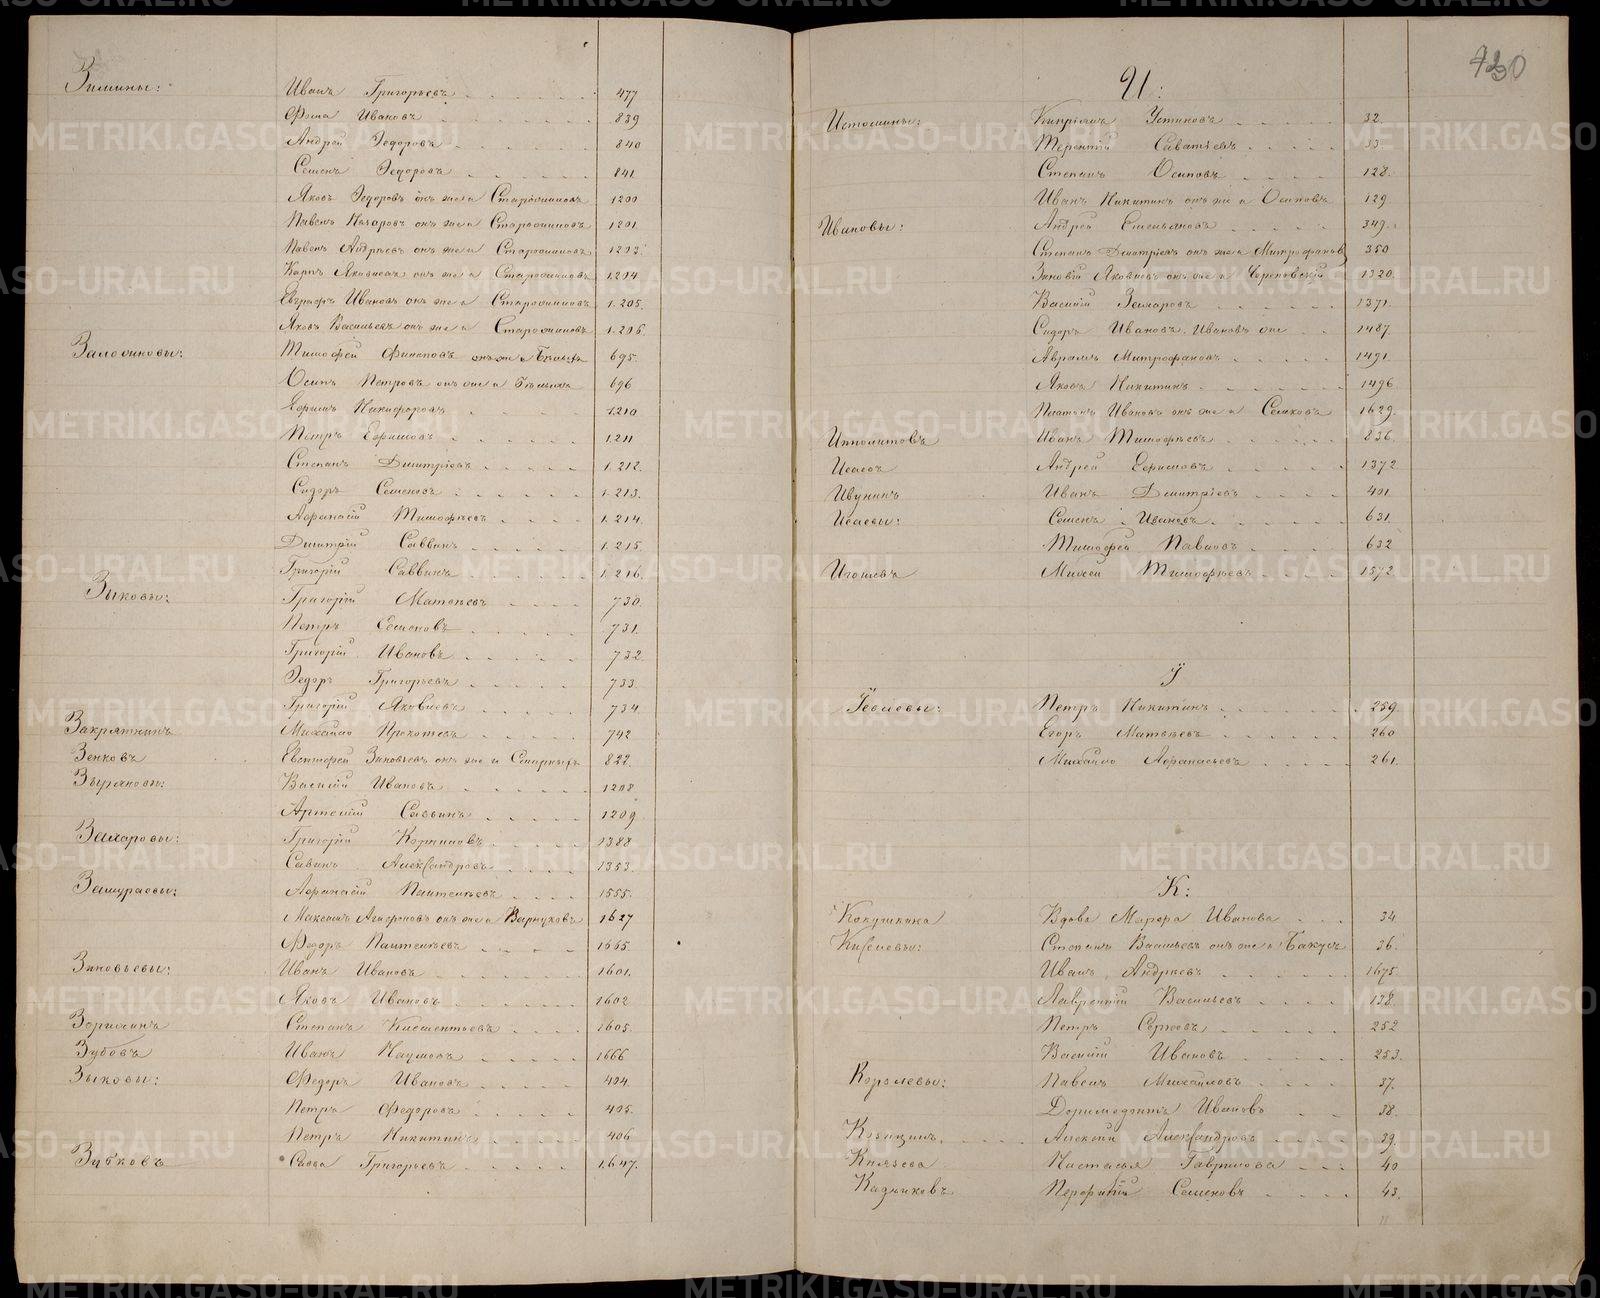 Зимины: Иванъ Григорьевъ 477
Фома Ивановъ 839
Андрей Ѳедоровъ 840
Семенъ Ѳедоровъ 841
Яковъ Ѳедоровъ онъ же и 1200
Павелъ Назаровъ онъ же и 1201
Павелъ Андреевъ онъ же и 1203
Карпъ Яковлевъ онъ же и 1204
Евграфъ Ивановъ онъ же и 1205.
Яковъ Васильевъ онъ же и 1206.
Тимофей Филиповъ онъ же и 695.
Осипъ Петровъ онъ же и 696
Ефимъ Никифоровъ 1210
Петръ Ефимовъ 1211
Степанъ Дмитріевъ 1212.
Сидоръ Семеновъ 1213.
Афанасій Тимофѣевъ 1214.
Дмитрій Саввинъ 1215.
Григорій Саввинъ 1216.
Зыковы: Григорій Матвѣевъ 730.
Петръ Семеновъ 731.
Григорій Ивановъ 732.
Ѳедоръ Григорьевъ 733.
Григорій Яковлевъ 734
Закряткинъ Михайло 742
Зенковъ Зиновьевъ онъ же и 822.
Василій Ивановъ 1208
Артемій Саввинъ 1209
Захаровы: Григорій 1388
Савинъ Александровъ 1353
Зашураевы: Афанасій Пантелѣевъ 1555.
Максимъ Агафоновъ онъ же и Варнуковъ 1627
Федоръ Пантелѣевъ
Зиновьевы: Иванъ Ивановъ 1601.
Яковъ Ивановъ 1602
Степанъ Климентьевъ 1605.
Зубовъ Иванъ Наумовъ 1666
Зыковы: Федоръ Ивановъ 404.
Петръ Федоровъ 405.
Петръ Никитинъ 406
Зубковъ Савва Григорьевъ 1647.
430
И:
Истомины: Кипріянъ Устиновъ 32
Терентій Саватѣевъ 33
Степанъ Осиповъ 128.
Иванъ Никитинъ онъ же и Осиповъ 129
Ивановы: Андрей Емельяновъ 349.
Степанъ Дмитріевъ онъ же и Митрофановъ 350
Зиновій Яковлевъ онъ же и Череповскій 1320.
Василій Захаровъ 1371.
Сидоръ Ивановъ. Ивановъ же 1487.
Аврамъ Митрофановъ 1491.
Яковъ Никитинъ 1496
Платонъ Ивановъ онъ же и Семковъ 1629.
Ипполитовъ Иванъ Тимофѣевъ 836.
Андрей Ефимовъ 1372
Ивунинъ Иванъ Дмитріевъ 401
Исаевы: Семенъ Ивановъ. 631.
Тимофей Павловъ 632
Игошевъ Михей Тимофѣевъ 1572
І
Іевлевы: Петръ Никитинъ 259
Егоръ Матвѣевъ 260
Михайло Афанасьевъ 261.
К:
Кокушкина Вдова Марфа Иванова 34
Киселевы: Степанъ Васильевъ онъ же и Бакусъ 36.
Иванъ Андреевъ 1675.
Лаврентій Васильевъ 138.
Петръ Сергѣевъ 252
Василій Ивановъ 253.
Королевы: Павелъ Михайловъ 37.
Доримедонтъ Ивановъ 38.
Козицынъ Алексѣй Александровъ 39.
Князева Настасья Гаврилова 40
Кадниковъ Порфирій Семеновъ 43.